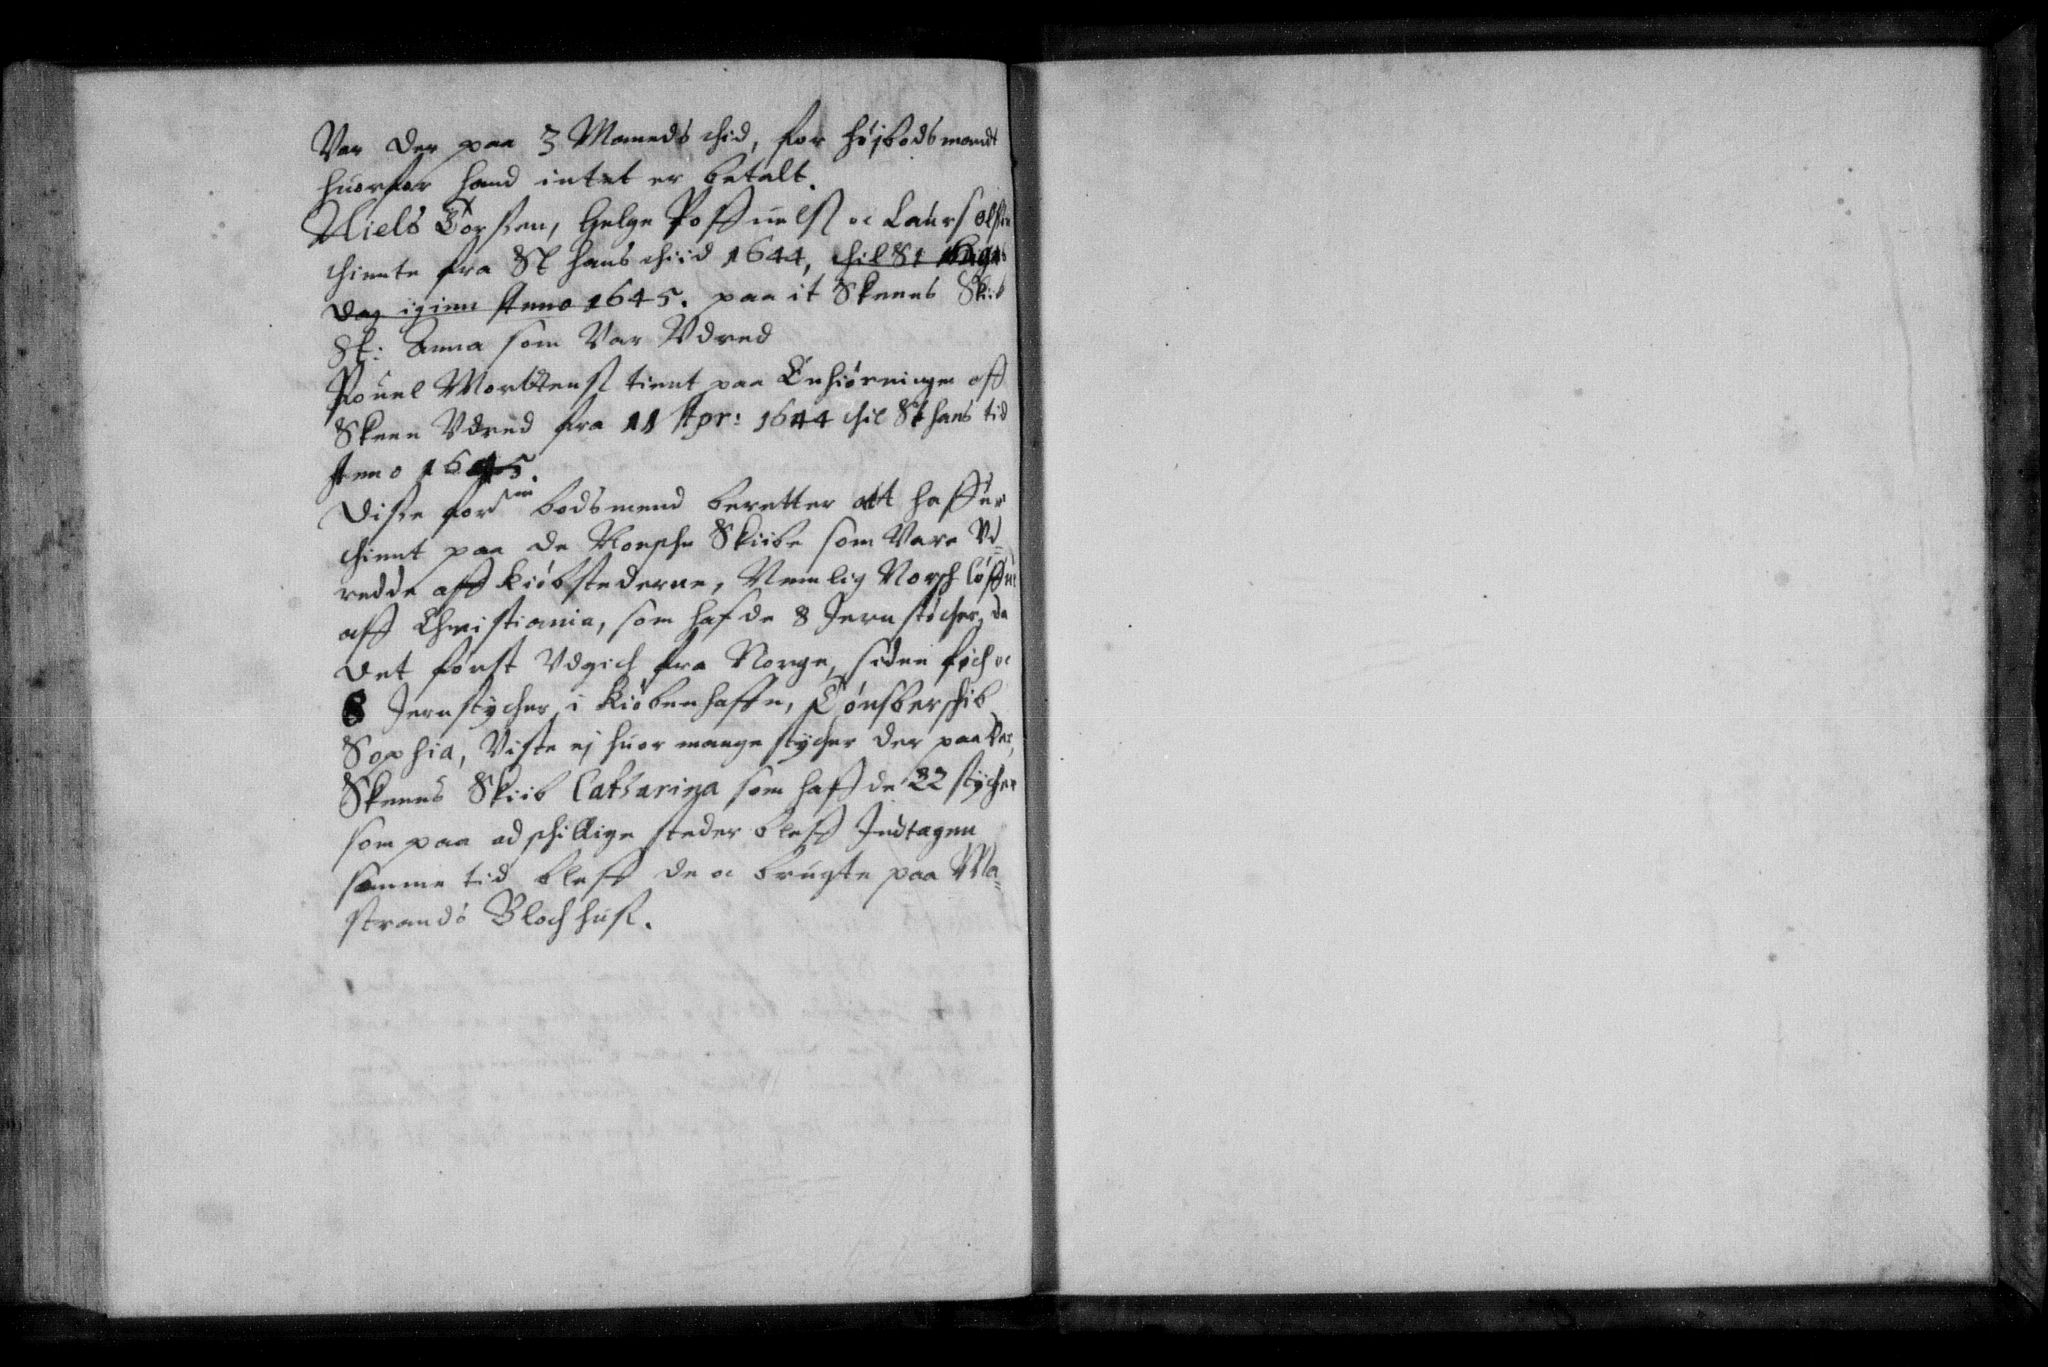 Var der paa 3 Maneds thid, for højbodsmandt
huorfor hand intet er betalt.
Niels Torsen, Helge Poffuelsß oc Laurs Olsen
thiente fra St hans thiid 1644, thil St
dag igien Anno 1645. paa it Skeens Skiib
St: Anna som Var Vdred
Pouel Mortensß tient paa Enhiørningen aff
Skeen Vdred fra 11 Apr: 1644 thil St hans tid
Anno 1645.
Disse for bodsmend beretter att haffue
thient paa de Norsche Skiibe som Vare Vd-
redde aff kiøbstederne, Nemlig Norsch løffue
aff Christiania, som hafde 8 Jernstøcher, da
det først Vdgich fra Norge, siden fich oc
8 Jernstycher i Kiøbenhaffn, Tønsberschib
Sophia, Viste ej huor mange stycher der paa Var,
Skeens Skiib Catharina som haffde 22 stycher
som paa adschillige steder bleff Indtagen
samme tid bleff de oc brugte paa Ma-
strands Blochhusß.